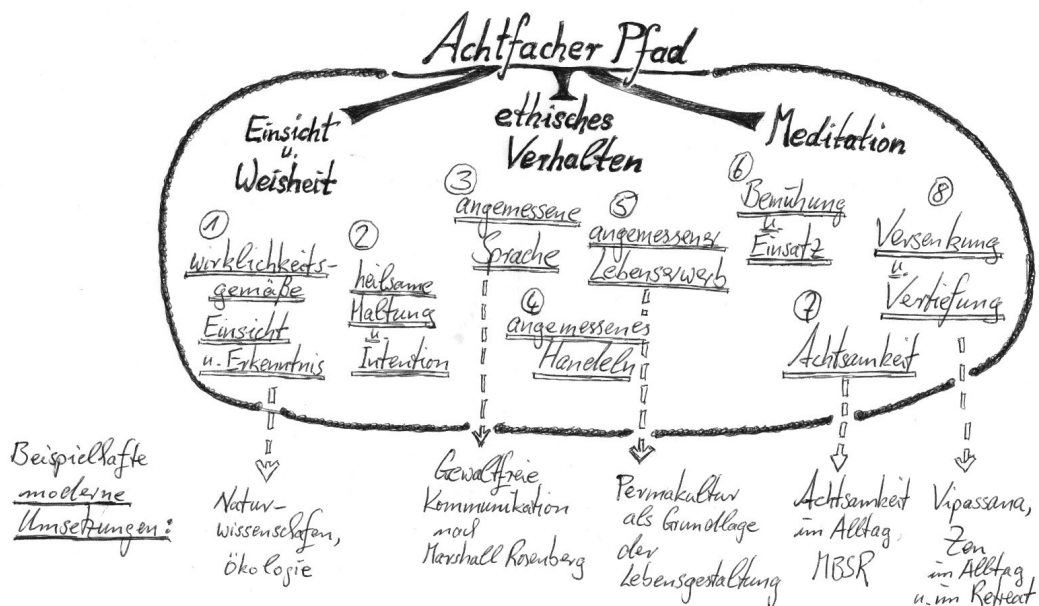 Achtfacher Pfad
Einsicht
u.
Weisheit
ethisches
Verhalten
Meditation
1
wirklichkeits-
gemäße
Einsicht
u. Erkenntnis
2
heilsame
Haltung
u
Intention
3
angemessene
Sprache
4
angemessenes
Handeln
5
angemessener
Lebenserwerb
6
Bemühung
u
Einsatz
7
Achtsamkeit
8
Versenkung
u.
Vertiefung
Beispielhafte
moderne
Umsetzungen:
Natur-
wissenschafen,
ökologie
Gewaltfreie
Kommunikation
nach
Marshall Rosenberg
Permakultur
als Grundlage
der
Lebensgestaltung
Achtsamkeit
im Alltag,
MBSR
Vipassana,
Zen
im Alltag
u. im Retreat